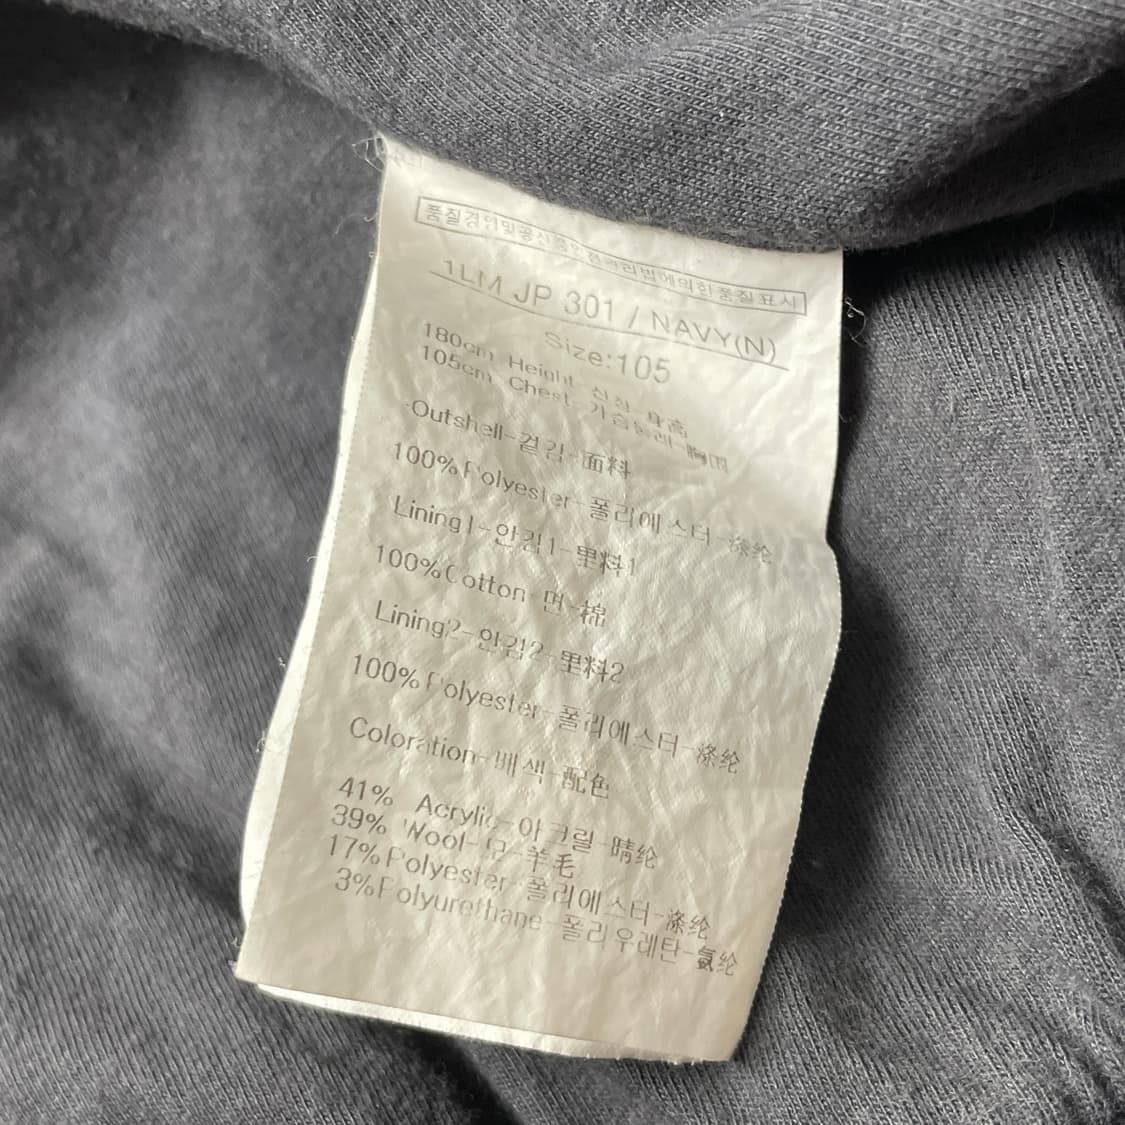 품질경영및공산품안전관리법에의한품질표시
1LM JP 301 / NAVY(N)
Size:105
180cm Height-신장-身高
105cm Chest-가슴둘레-胸围
Outshell-겉감-面料
100%Polyester-폴리에스터-涤纶
Lining1-안감1-里料1
100%Cotton-면-棉
Lining2-안감2-里料2
100%Polyester-폴리에스터-涤纶
Coloration-배색-配色
41% Acrylic-아크릴-晴纶
39% Wool-모-羊毛
17%Polyester-폴리에스터-涤纶
3%Polyurethane-폴리우레탄-氨纶